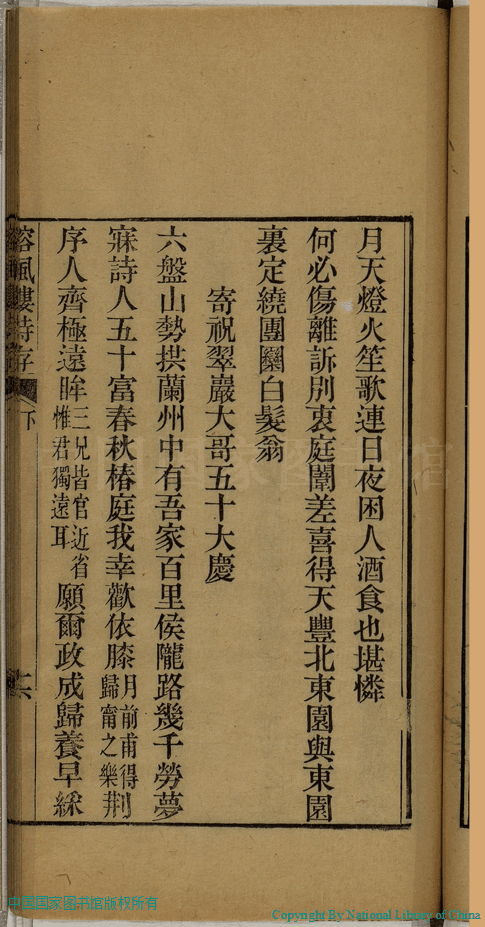 月天燈火笙歌連日夜困人酒食也堪憐
何必傷離訴別衷庭闈差喜得天豐北東園與東園
裏定繞團圞白髮翁
寄祝翠巖大哥五十大慶
六盤山勢拱蘭州中有吾家百里侯隴路幾千勞夢
寐詩人五十富春秋椿庭我幸歡依膝月前甫得歸甯之樂荆
序人齊極遠眸三兄皆官近省惟君獨遠耳願爾政成歸養早綵
樓詩存
下
中国国家图书馆版权所有
Copyright By National Library of China